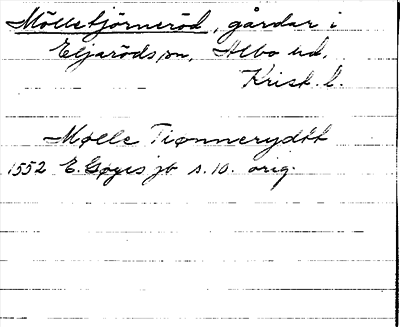 Mölletjörneröd, gårdar i
Eljaröds sn, Albo hd.
Krist. l.
Mølle Tiønnerydtt
1552 E. Gøyes jb s. 10. orig.